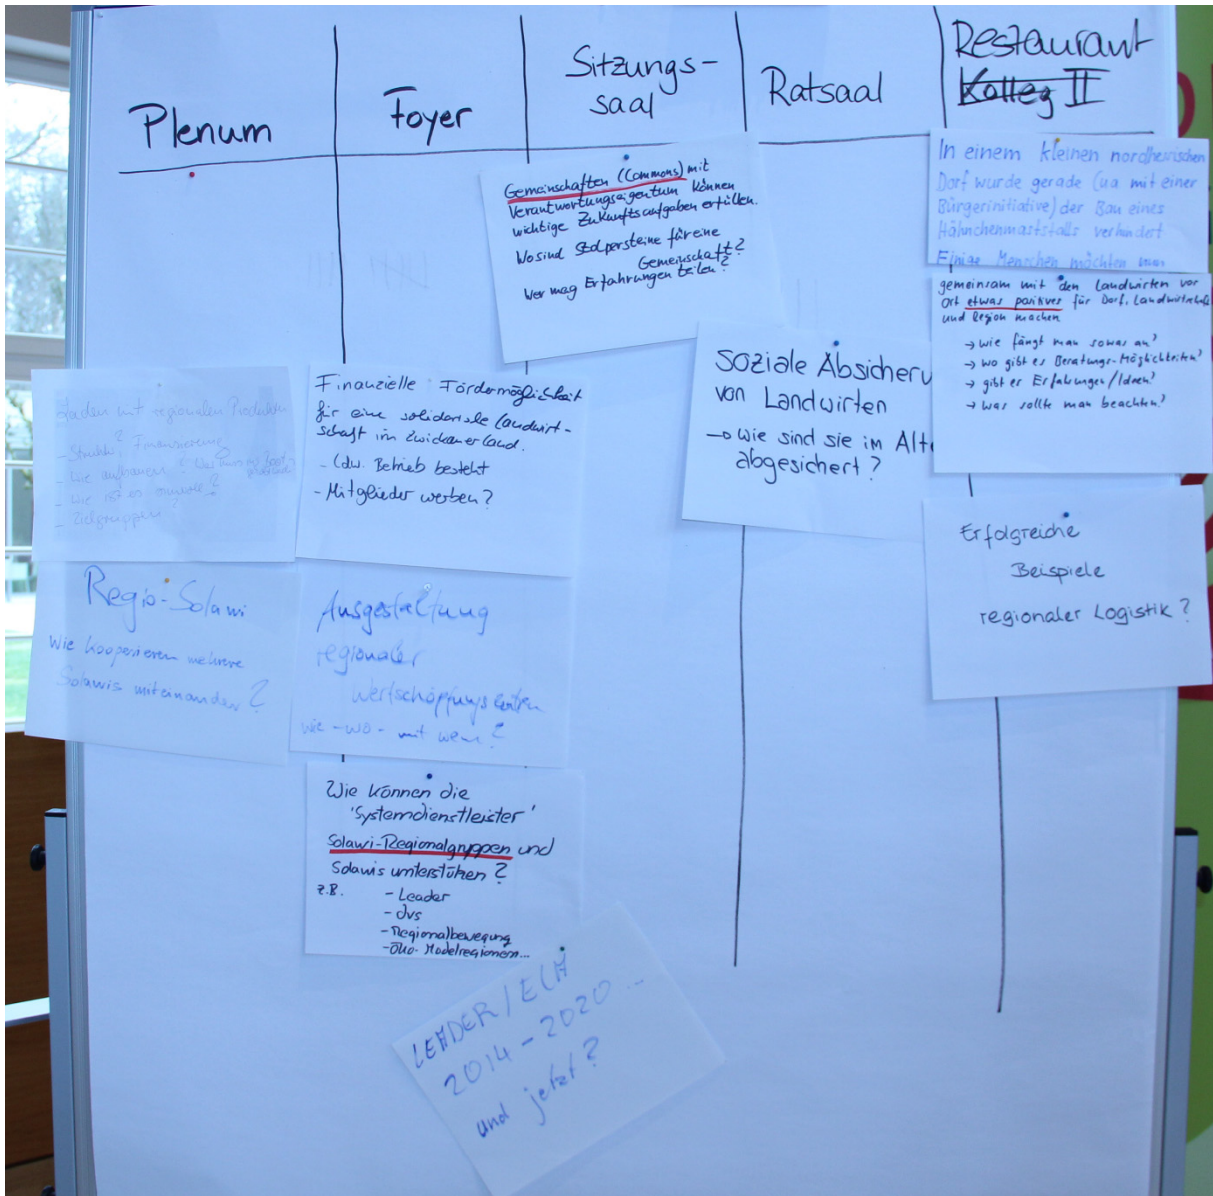 Plenum
Foyer
Sitzungs-
saal
Ratsaal
Restaurant
Kolleg II
Gemeinschaften (Commons) mit
Verantwortungseigentum können
wichtige Zukunftsaufgaben erfüllen.
Wo sind Stolpersteine für eine
Gemeinschaft?
Wer mag Erfahrungen teilen?
In einem kleinen nordhessischen
Dorf wurde gerade (ua mit einer
Bürgerinitiative) der Bau eines
Hähnchenmaststalls verhindert
Einige Menschen möchten nun
gemeinsam mit den Landwirten vor
Ort etwas positives für Dorf, Landwirtschaft
und Region machen
→ wie fängt man sowas an?
→ wo gibt es Beratungs-Möglichkeiten?
→ gibt es Erfahrungen/Ideen?
→ was sollte man beachten?
Soziale Absicheru
von Landwirten
→ wie sind sie im Alte
abgesichert?
Erfolgreiche
Beispiele
regionaler Logistik?
Laden mit regionalen Produkten
- Struktur? Finanzierung
- Wie aufbauen?
- Wie ist es
- Zielgruppen?
Finanzielle Fördermöglichkeit
für eine solidarische Landwirt-
schaft im Zwickauerland.
- Ldw. Betrieb besteht
- Mitglieder werben?
Regio-Solawi
Wie kooperieren mehrere
Solawis miteinander?
Ausgestaltung
regionaler
Wertschöpfungsketten
wie - wo - mit wem?
Wie können die
'Systemdienstleister'
Solawi-Regionalgruppen und
Solawis unterstützen?
z.B. - Leader
- dvs
- Regionalbewegung
- Öko-Modelregionen...
LEADER/ELA
2014-2020 ...
und jetzt?